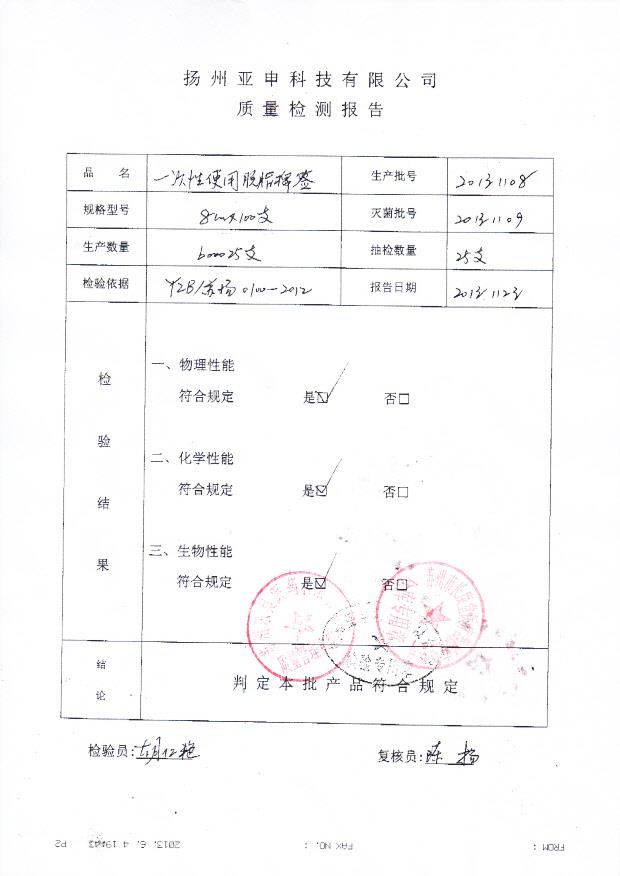 扬州亚申科技有限公司
质量检测报告
品 名 一次性使用脱脂棉签 生产批号 20131108
规格型号 8cm×100支 灭菌批号 20131109
生产数量 600025支 抽检数量 25支
检验依据 YZB/苏扬 0100-2012 报告日期 20131123
检验结果
一、物理性能
符合规定 是☑ 否□
二、化学性能
符合规定 是☑ 否□
三、生物性能
符合规定 是☑ 否□
结论 判定本批产品符合规定
检验员:胡仁艳 复核员:陈扬
FROM : FAX NO. : 2013. 6. 4 19:43 P2